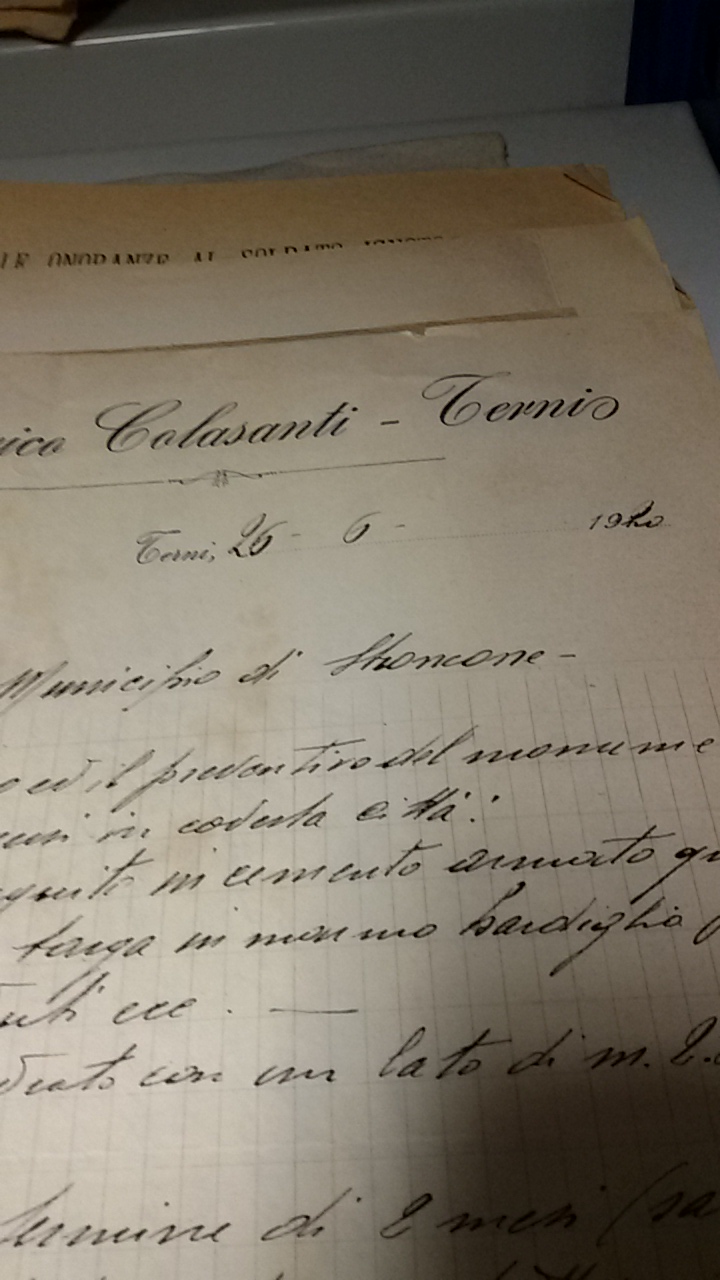 LE ONORANZE AL SOLDATO IGNOTO
rico Colasanti - Terni
Terni, 26 - 6 - 1920
Municipio di Stroncone -
o ed il preventivo del monume
in codesta città:
eguito in cemento armato qu
targa in marmo bardiglio
ecc. —
drato con un lato di m. 2.
termine di 2 mesi (sa